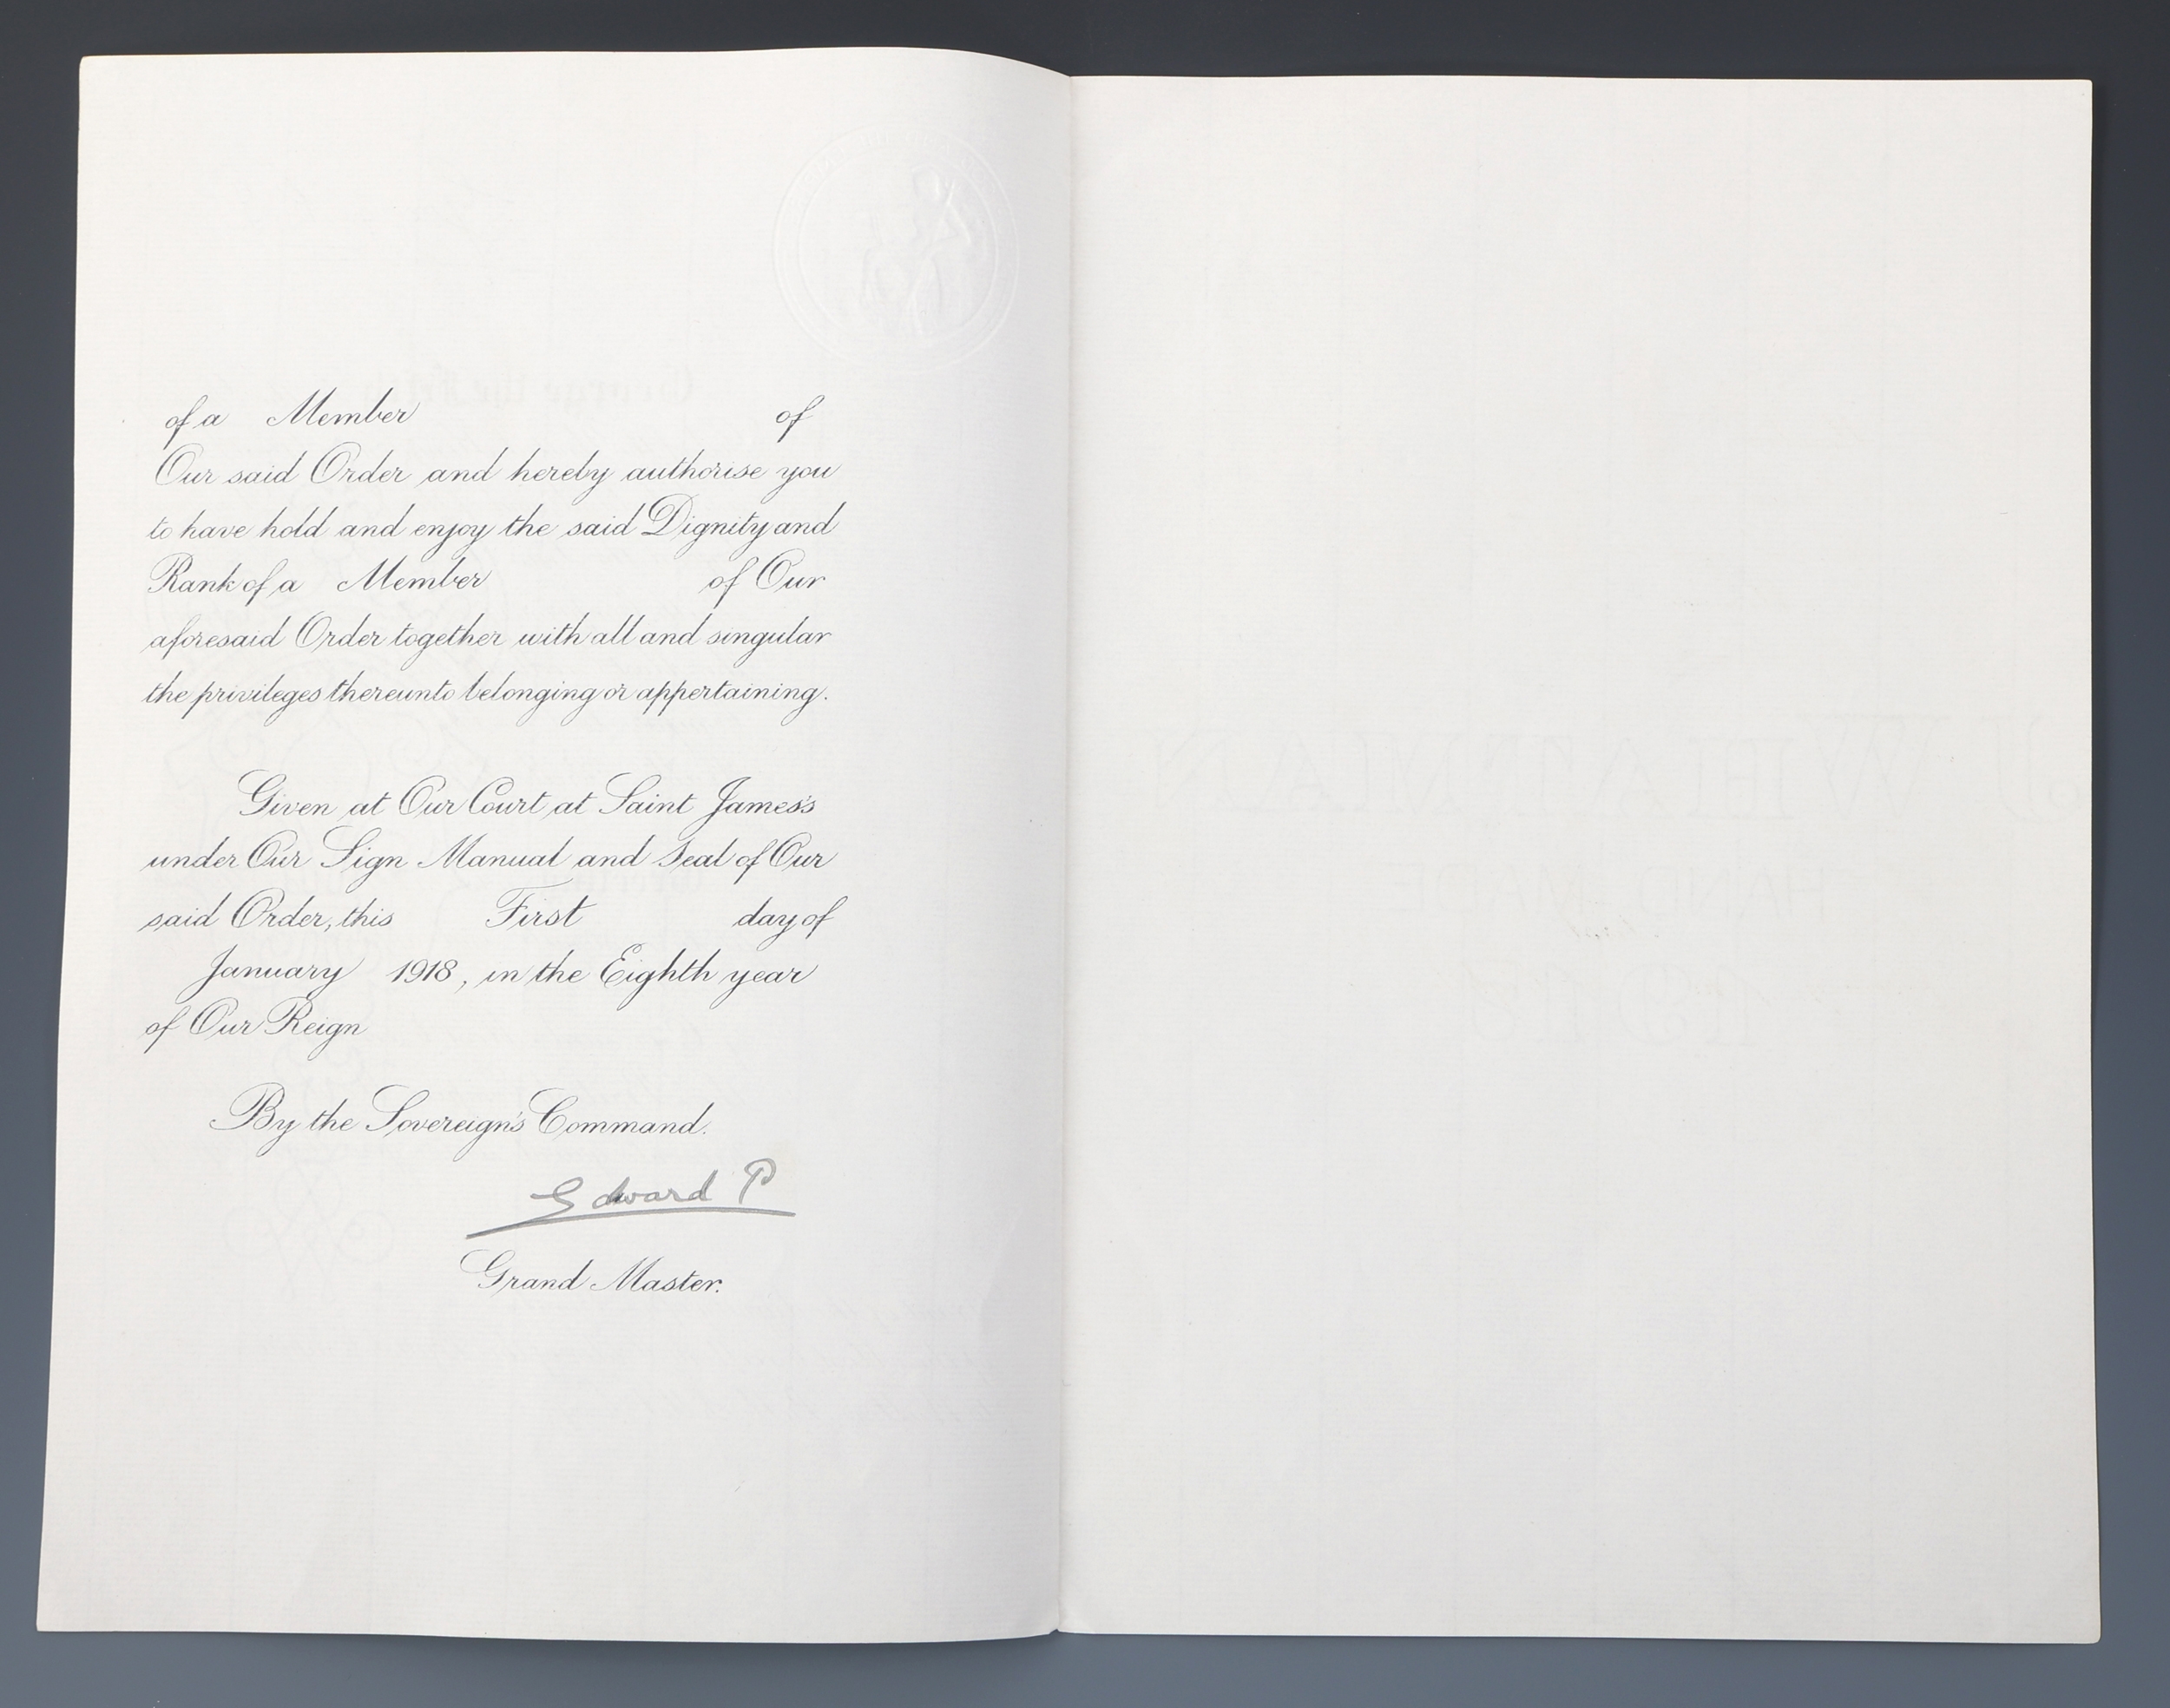 of a Member of
Our said Order and hereby authorise you
to have hold and enjoy the said Dignity and
Rank of a Member of Our
aforesaid Order together with all and singular
the privileges thereunto belonging or appertaining.
Given at Our Court at Saint James's
under Our Sign Manual and Seal of Our
said Order, this First day of
January 1918, in the Eighth year
of Our Reign
By the Sovereign's Command.
Edward P
Grand Master.
J WHATMAN
HAND MADE